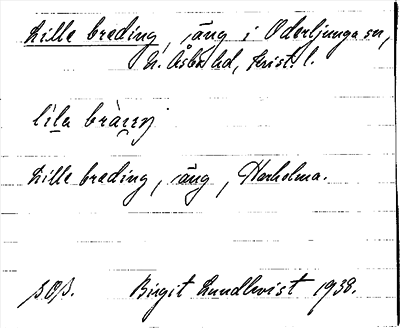 Lille breding, äng i Oderljunga sn,
N. Åsbo hd, Krist. l.
lila bräɳɳ
Lille breding, äng, Herholma.
S.O.S. Birgit Lundkvist 1938.